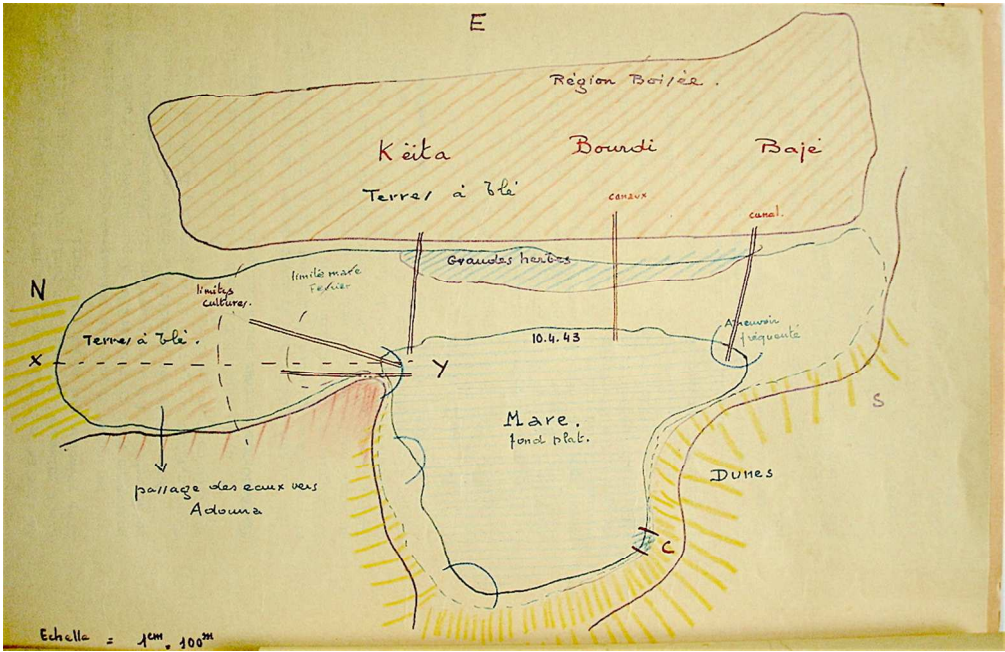 E
Région Boisée.
Kéita
Bourdi
Bajé
Terres à blé
canaux
canal.
Grandes herbes
limité mare
Février
limites
cultures.
N
Terres à blé.
10.4.43
Abreuvoir
fréquenté
X
Y
S
Mare.
fond plat.
Dunes
passage des eaux vers
Adouna
C
Echelle = 1cm. 100m